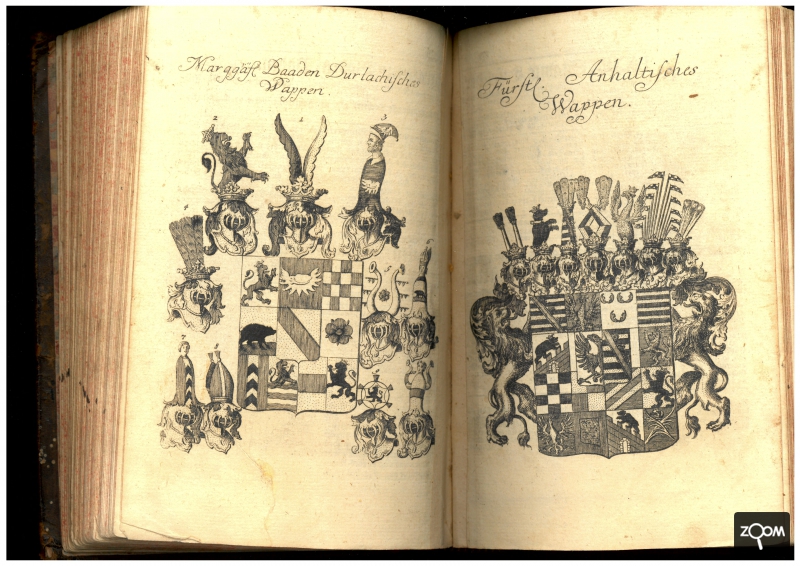 Marggäfl. Baaden Durlachisches
Wappen.
2
1
3
4
5
6
7
8
Fürstl. Anhaltisches
Wappen.
ZOOM